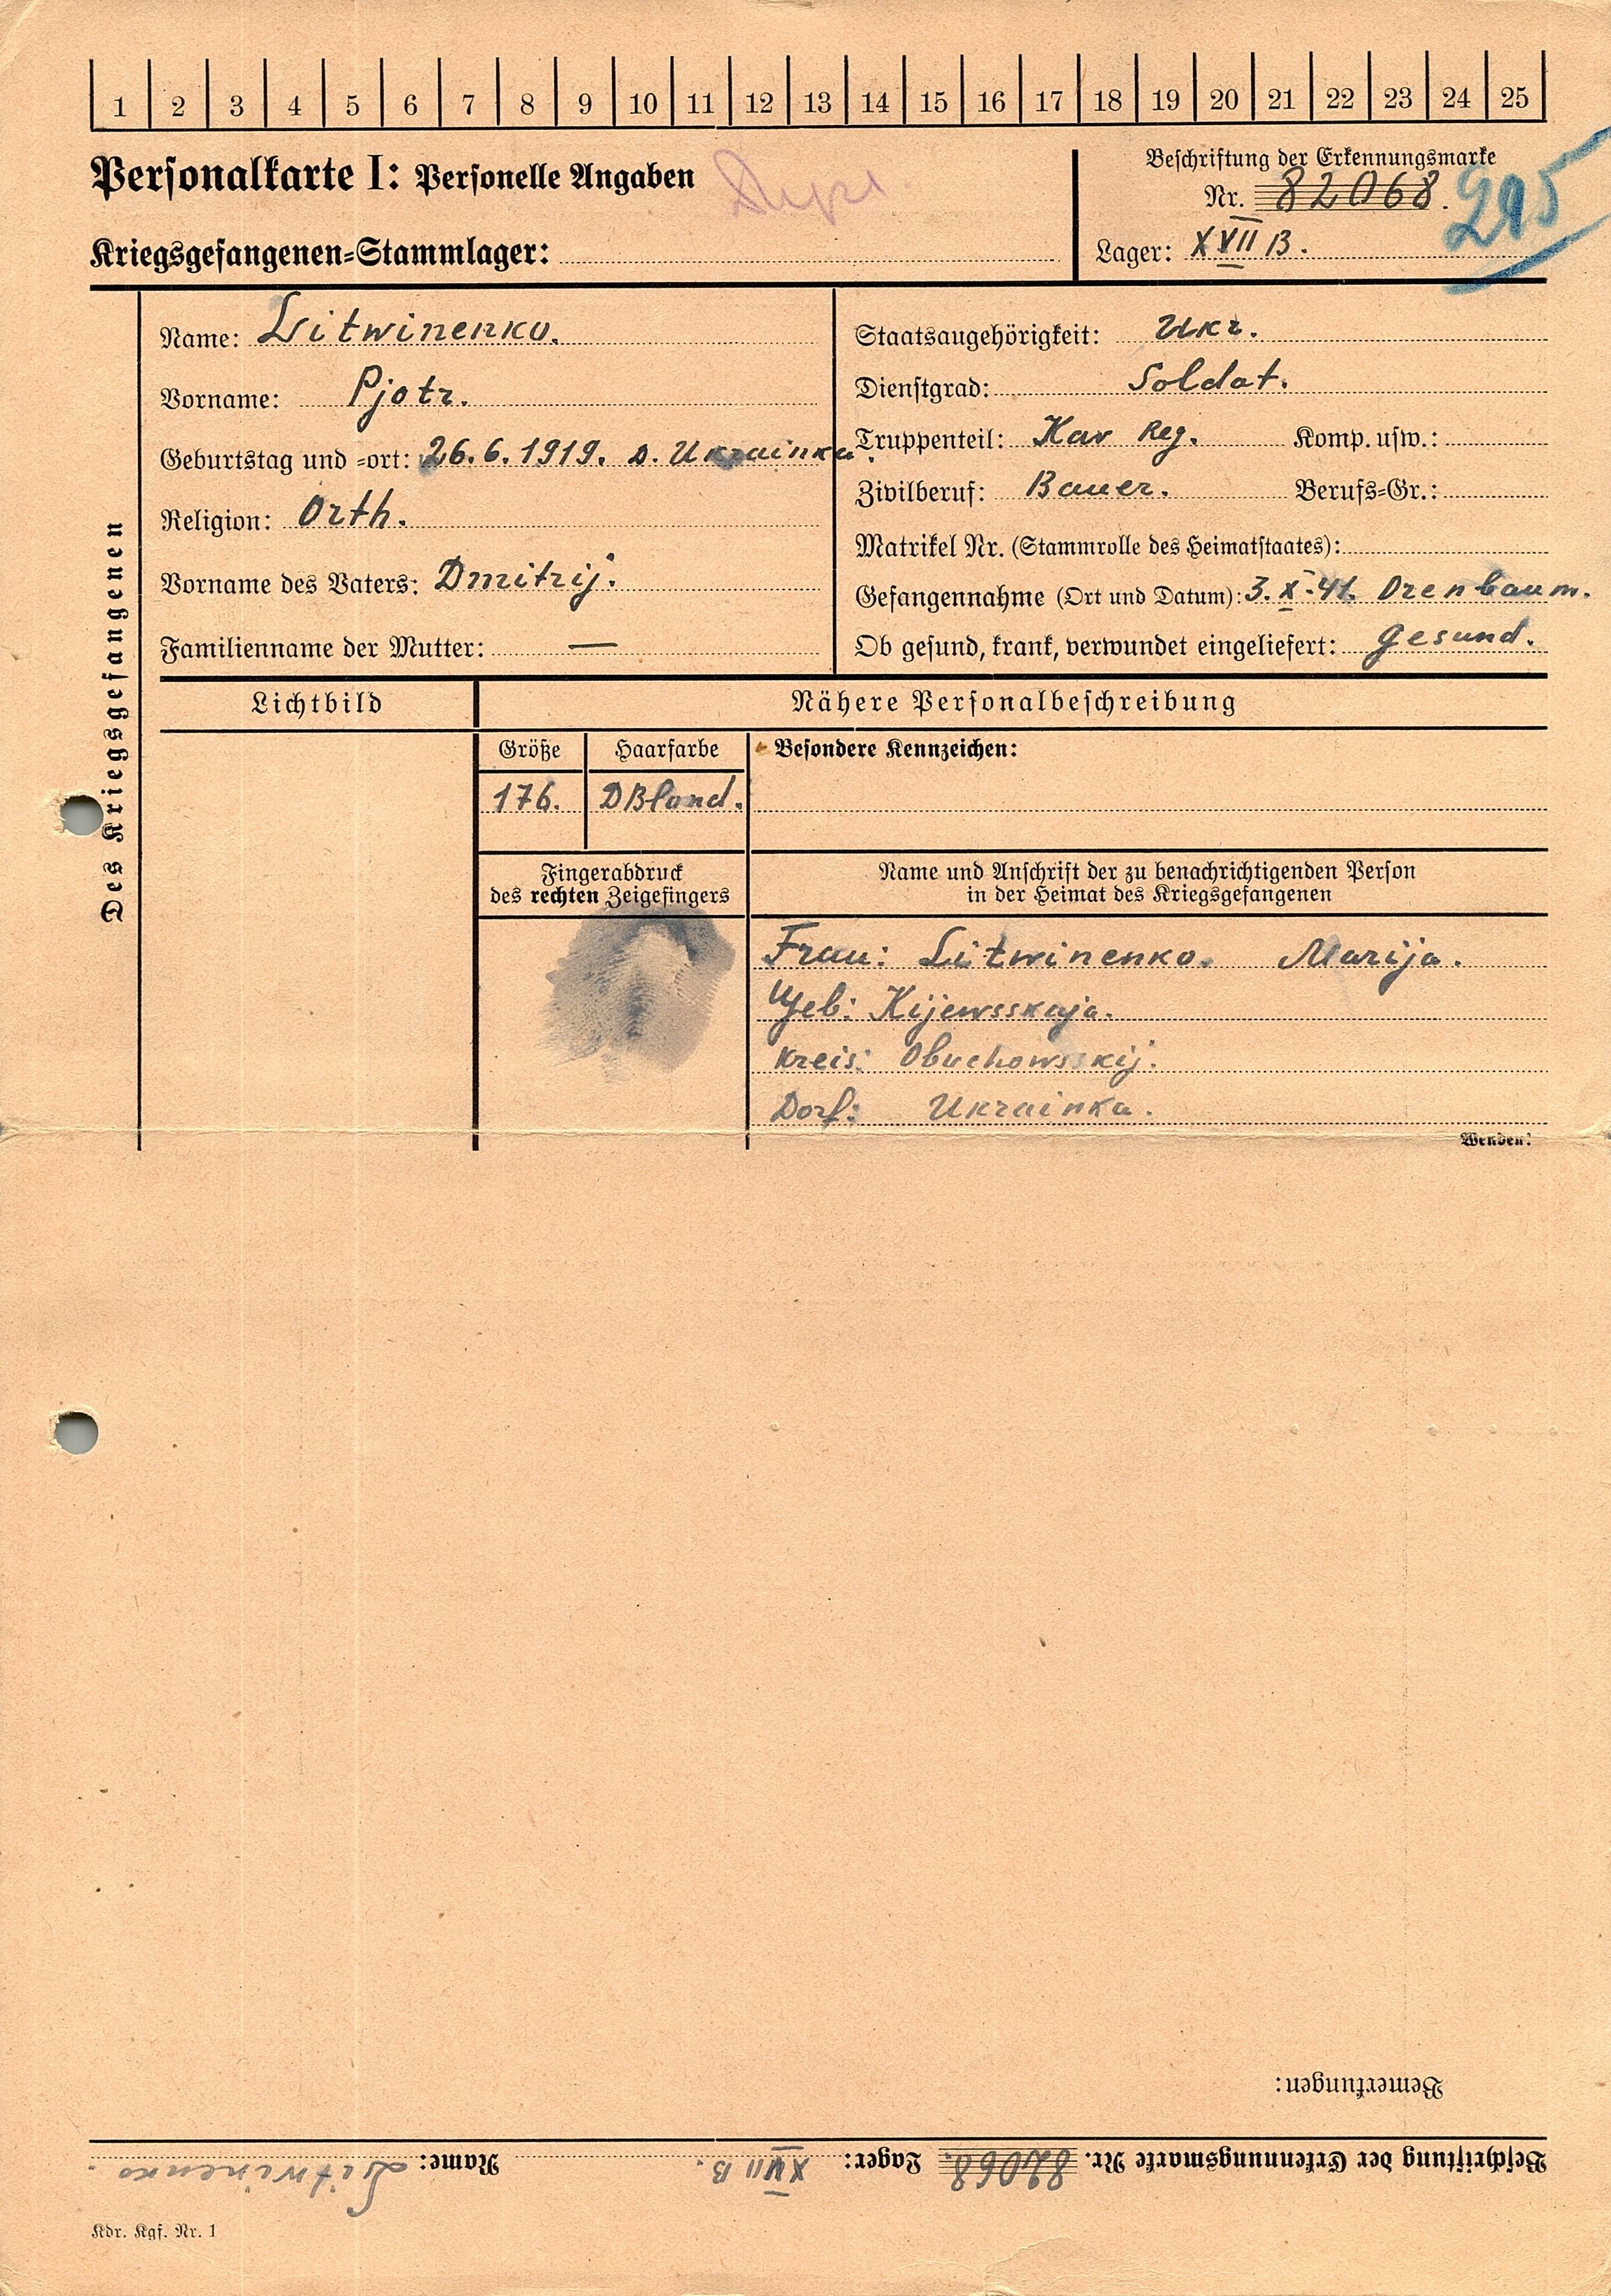 1 2 3 4 5 6 7 8 9 10 11 12 13 14 15 16 17 18 19 20 21 22 23 24 25
Personalkarte I: Personelle Angaben
Beschriftung der Erkennungsmarke
Nr. 82068.
Kriegsgefangenen-Stammlager:
Lager: XVII B.
Des Kriegsgefangenen
Name: Litwinenko.
Vorname: Pjotr.
Geburtstag und -ort: 26.6.1919. D. Ukrainka.
Religion: Orth.
Vorname des Vaters: Dmitrij.
Familienname der Mutter: —
Staatsangehörigkeit: Ukr.
Dienstgrad: Soldat.
Truppenteil: Kav Reg. Komp. usw.:
Zivilberuf: Bauer. Berufs-Gr.:
Matrikel Nr. (Stammrolle des Heimatstaates):
Gefangennahme (Ort und Datum): 3.X.41. Orenbaum.
Ob gesund, krank, verwundet eingeliefert: Gesund.
Lichtbild
Nähere Personalbeschreibung
Größe
Haarfarbe
Besondere Kennzeichen:
176.
DBlond.
Fingerabdruck
des rechten Zeigefingers
Name und Anschrift der zu benachrichtigenden Person
in der Heimat des Kriegsgefangenen
Frau: Litwinenko. Marija.
Geb: Kijewsskaja.
Kreis: Obuchowsskij.
Dorf: Ukrainka.
Wenden!
Bemerkungen:
Beschriftung der Erkennungsmarke Nr. 82068. Lager: XVII B. Name: Litwinenko.
Kdr. Kgf. Nr. 1